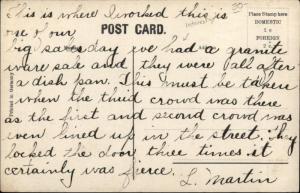 This is where I worked this is
one of our
POST CARD.
Place Stamp here
DOMESTIC
1c
FOREIGN
2c
big sales day we had a granite
ware sale and they were all after
a dish pan. This must be taken
when the third crowd was there
as the first and second crowd was
even lined up in the street. They
locked the door three times it
certainly was fierce.
L. Martin
Printed in Germany